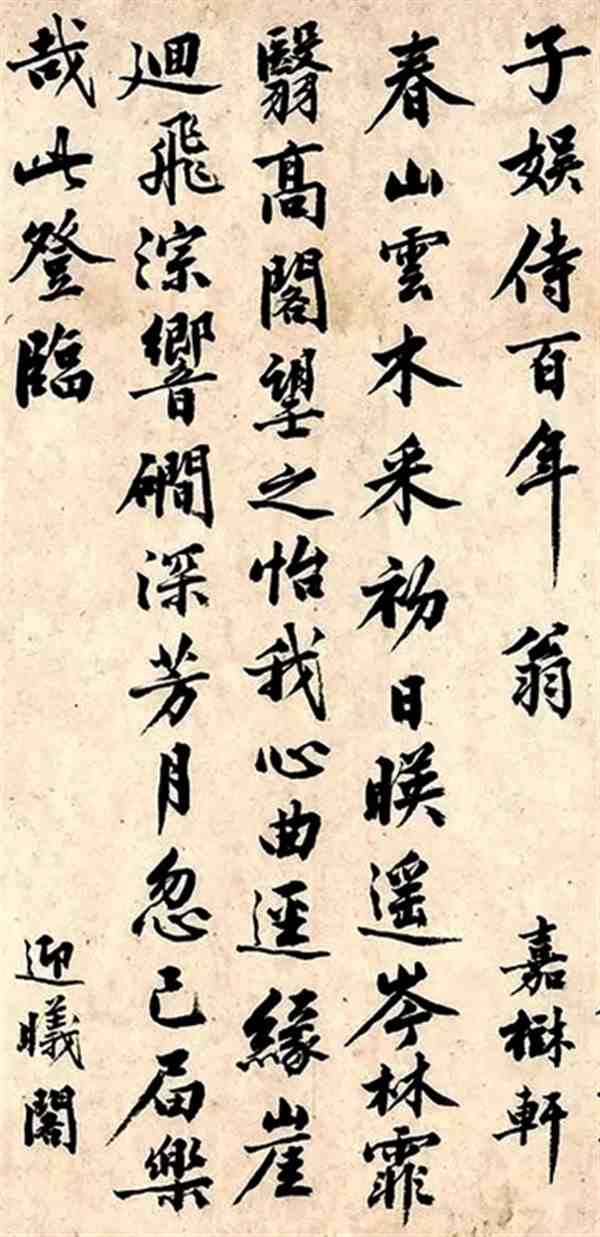 子娛侍百年翁 嘉樹軒
春山雲木采初日暎遥岑林霏
翳髙閣望之怡我心曲逕緣崖
廻飛淙響磵深芳月忽已届樂
哉此登臨 迎曦閣